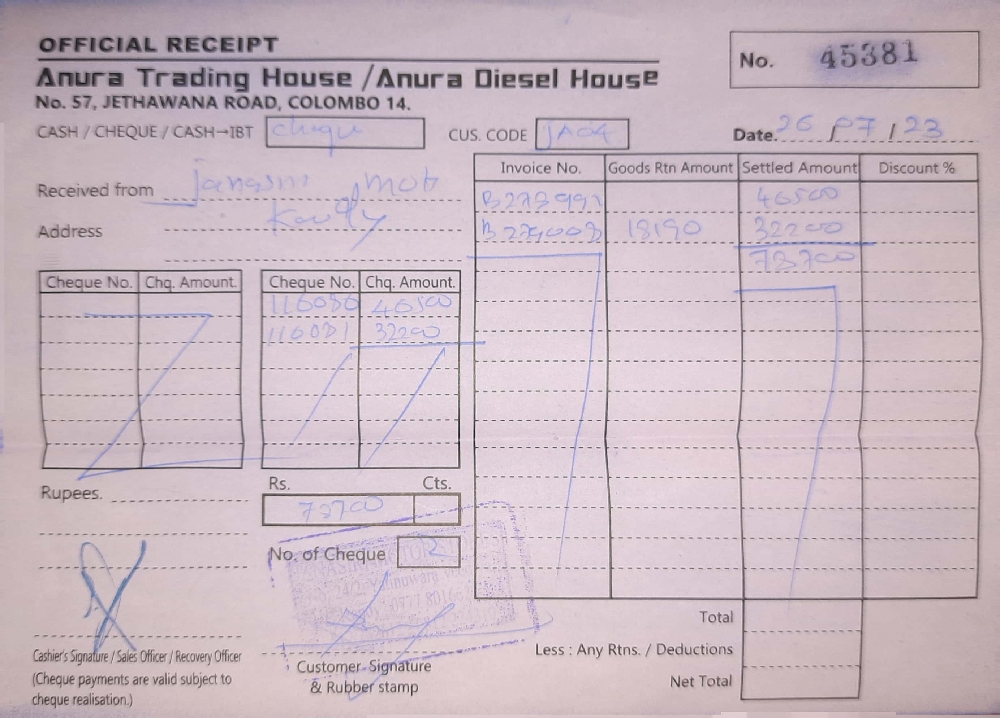 OFFICIAL RECEIPT
No. 45381
Anura Trading House / Anura Diesel House
No. 57, JETHAWANA ROAD, COLOMBO 14.
CASH / CHEQUE / CASH→IBT cheque CUS. CODE JA04 Date. 26 / 07 / 23
Invoice No. Goods Rtn Amount Settled Amount Discount %
Received from
Address
46500
18190 32200
78700
Cheque No. Chq. Amount. Cheque No. Chq. Amount.
46500
32200
Rupees.
Rs. Cts.
78700
No. of Cheque 2
Total
Less : Any Rtns. / Deductions
Net Total
Cashier's Signature / Sales Officer / Recovery Officer
(Cheque payments are valid subject to
cheque realisation.)
Customer Signature
& Rubber stamp